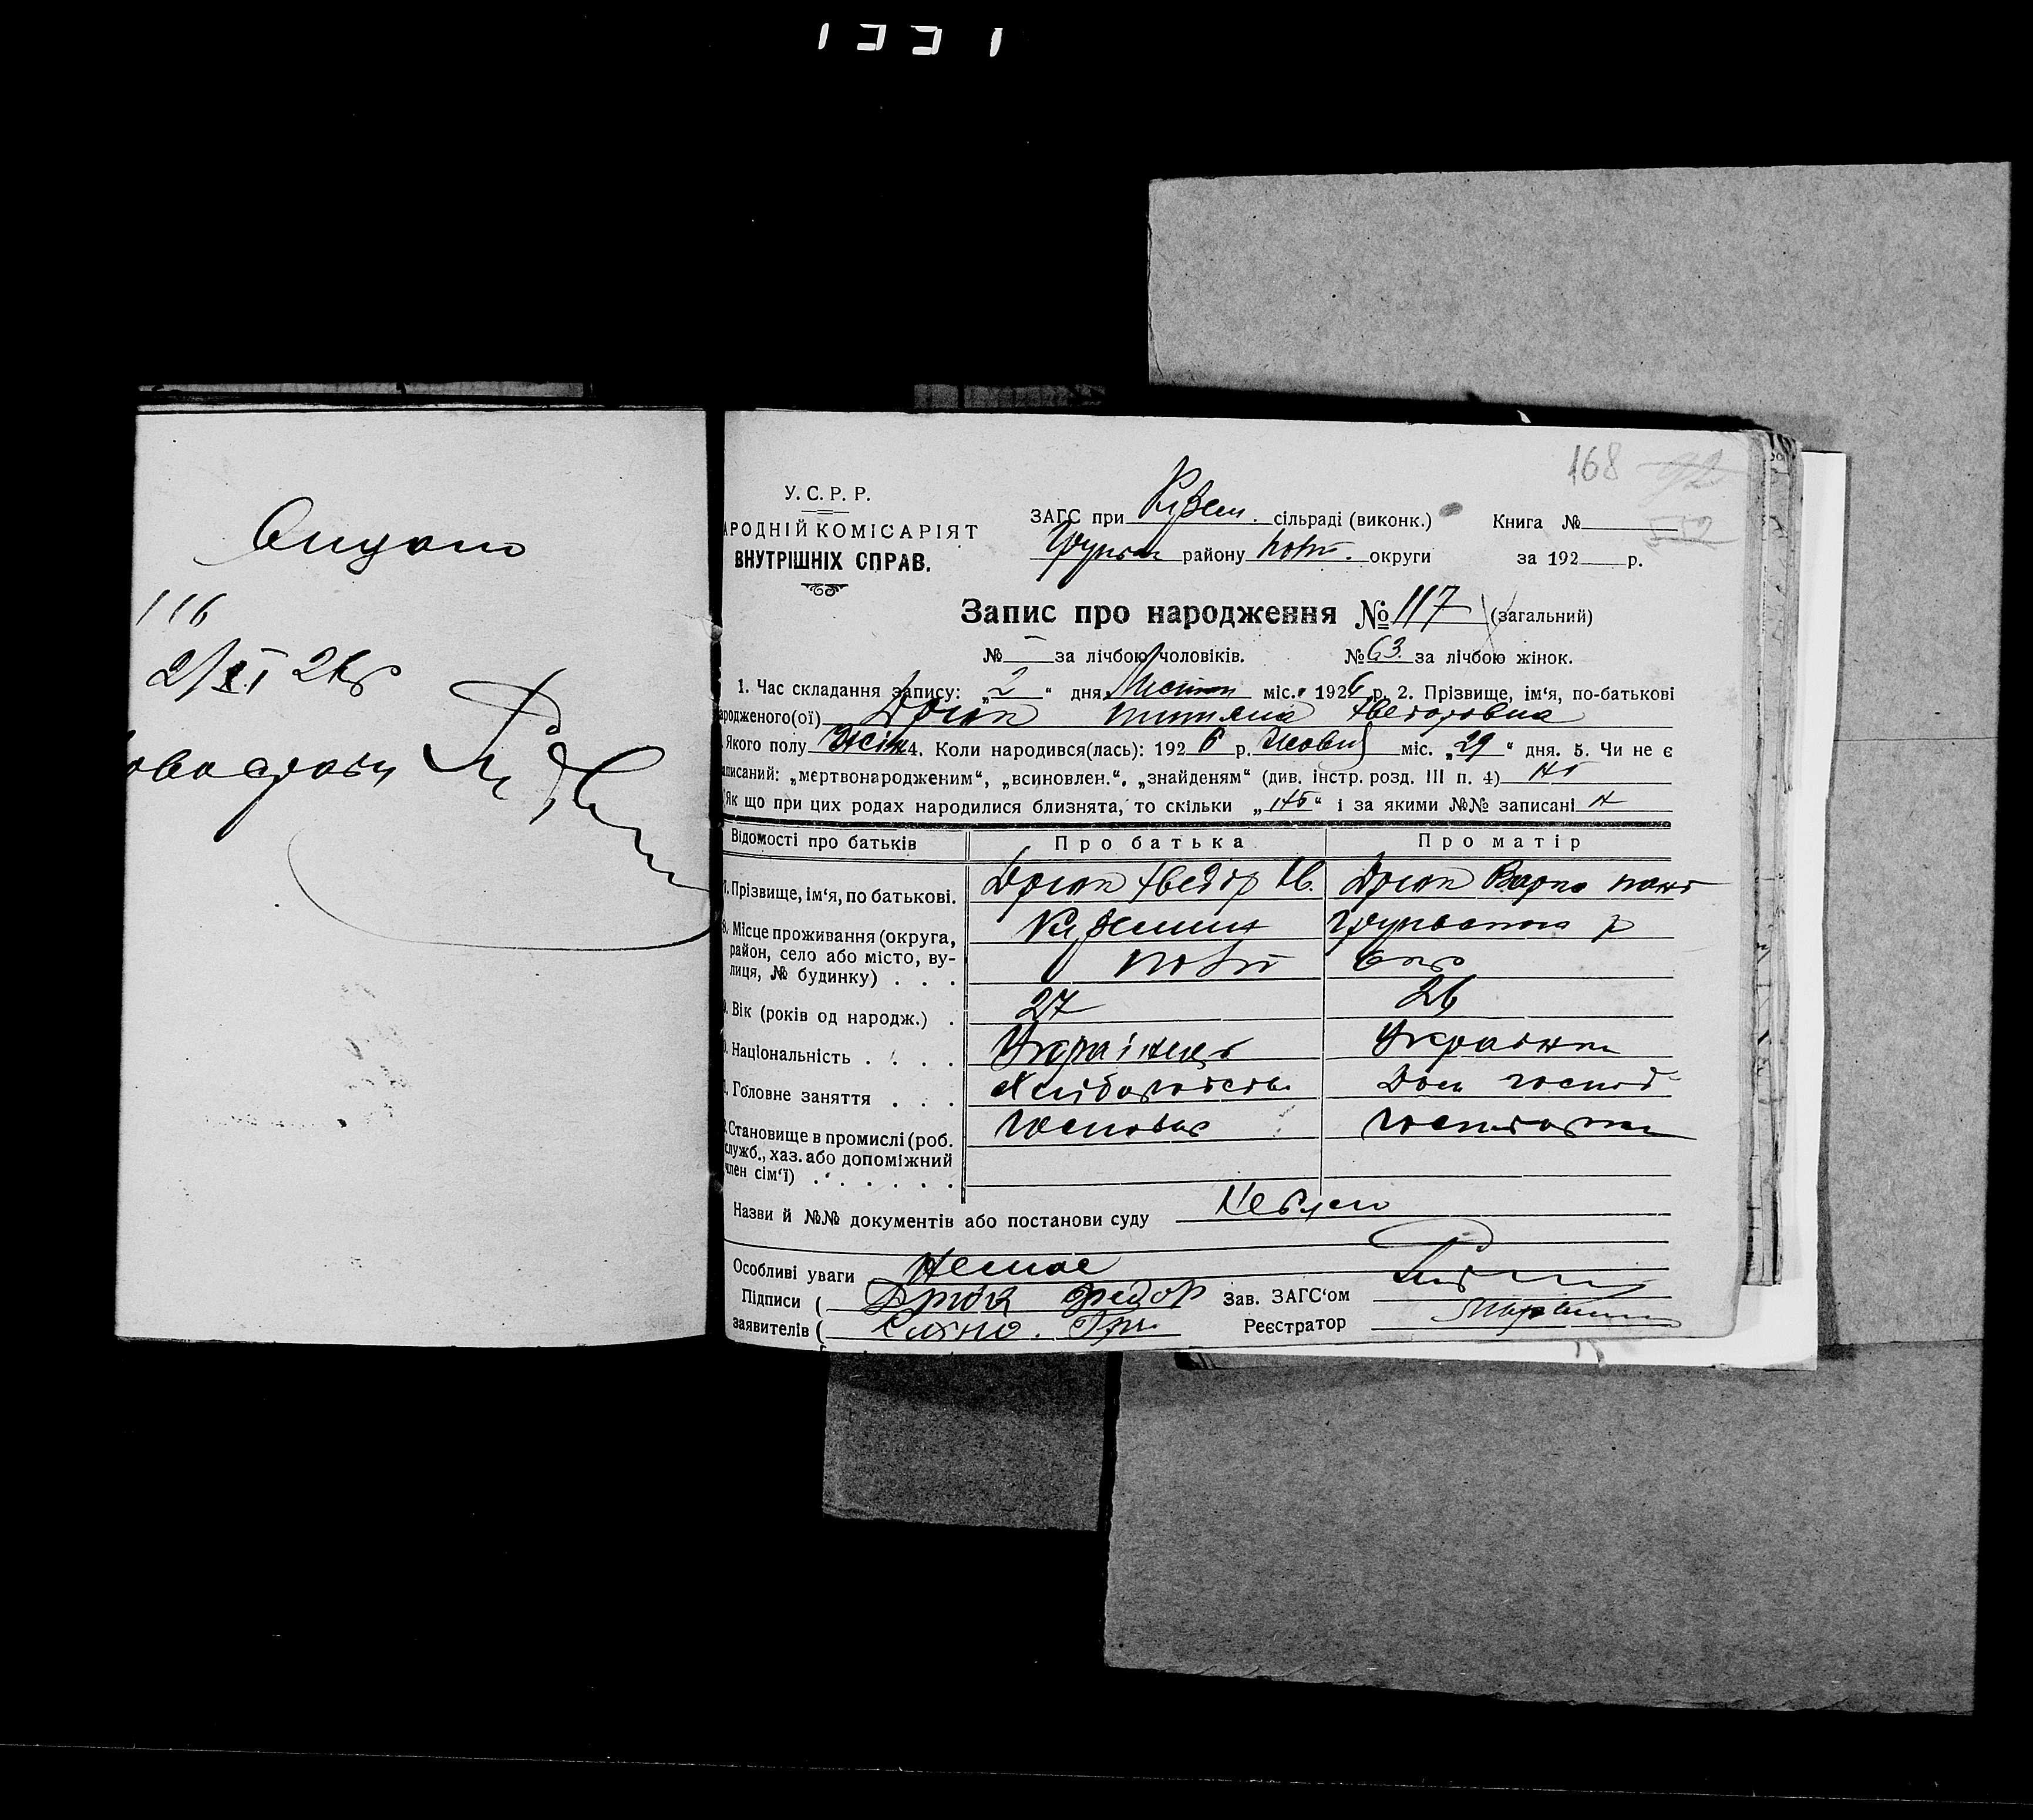 116
2/XI 26р
168
У. С. Р. Р.
АРОДНІЙ КОМІСАРІЯТ
ВНУТРІШНІХ СПРАВ.
ЗАГС при Кузем. сільраді (виконк.)
району Полт. округи
Книга №
за 192 р.
Запис про народження № 117 (загальний)
№ — за лічбою чоловіків. № 63. за лічбою жінок.
1. Час складання запису: „ 2 “ дня міс. 1926 р. 2. Прізвище, ім‘я, по-батькові
ародженого(ої) Дрюк Федоровна
Якого полу Жін 4. Коли народився(лась): 1926 р. Жовт міс. „ 29 “ дня. 5. Чи не є
аписаний: „мертвонародженим“, „всиновлен.“, „знайденям“ (див. інстр. розд. III п. 4) ні
Як що при цих родах народилися близнята, то скільки „ ні “ і за якими №№ записані
Відомості про батьків Про батька Про матір
7. Прізвище, ім‘я, по батькові. Дрюк Федор Дрюк Варка
8. Місце проживання (округа, Куземин Грунської р
район, село або місто, ву- Полт окр
лиця, № будинку) . . .
9. Вік (років од народж.) . 27 26
Національність . . . . Українець Українка
Головне заняття . . . Хліборобств Дом господ
Становище в промислі (роб. Господар Господарка
служб., хаз. або допоміжний
член сім‘ї) . . . . . . .
Назви й №№ документів або постанови суду Не було
Особливі уваги Немае
Підписи ( Дрюк Федор Зав. ЗАГС‘ом
заявителів ( Реєстратор